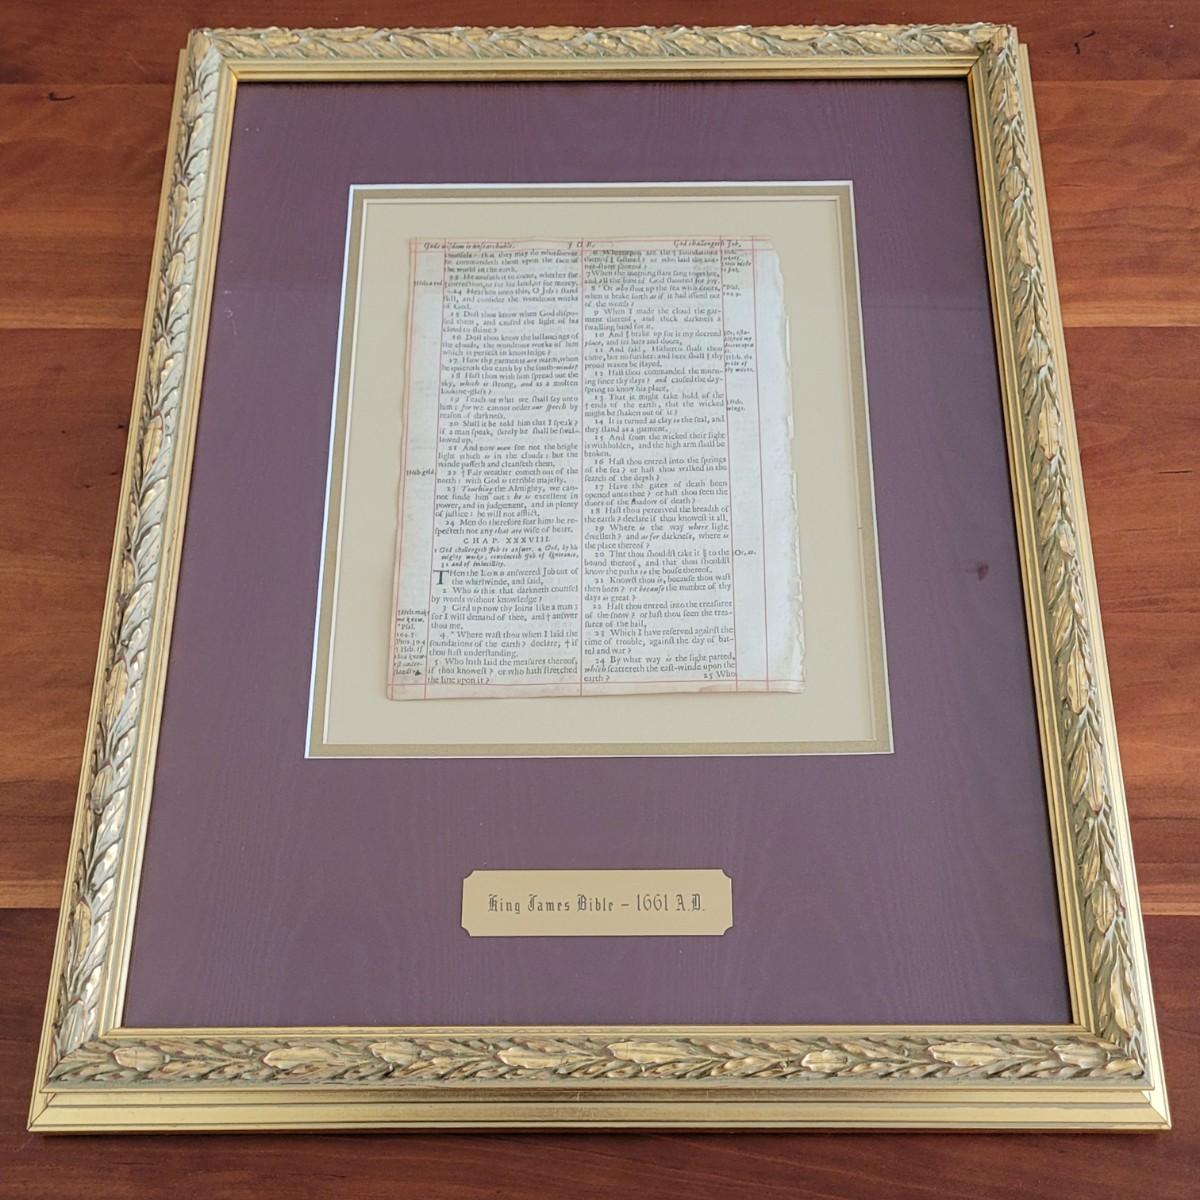 Gods wisdom is unsearchable. JOB. God challengeth Job.
counsels: that they may do whatsoever
he commandeth them upon the face of
the world in the earth.
13 He causeth it to come, whether for
correction, or for his land, or for mercy.
14 Hearken unto this, O Job: stand
still, and consider the wondrous works
of God.
15 Dost thou know when God dispo-
sed them, and caused the light of his
cloud to shine?
16 Dost thou know the ballancings of
the clouds, the wondrous works of him
which is perfect in knowledge?
17 How thy garments are warm, when
he quieteth the earth by the south-winde?
18 Hast thou with him spread out the
sky, which is strong, and as a molten
looking-glass?
19 Teach us what we shall say unto
him: for we cannot order our speech by
reason of darkness.
20 Shall it be told him that I speak?
if a man speak, surely he shall be swal-
lowed up.
21 And now men see not the bright
light which is in the clouds: but the
winde passeth and cleanseth them.
Heb. gold.
22 † Fair weather cometh out of the
north: with God is terrible majesty.
23 Touching the Almighty, we can-
not finde him out: he is excellent in
power, and in judgement, and in plenty
of justice: he will not afflict.
24 Men do therefore fear him: he re-
specteth not any that are wise of heart.
CHAP. XXXVIII.
1 God challengeth Job to answer. 4 God, by his
mighty works, convinceth Job of ignorance,
31 and of imbecillity.
THen the LORD answered Job out of
the whirlwinde, and said,
2 Who is this that darkneth counsel
by words without knowledge?
3 Gird up now thy loins like a man;
for I will demand of thee, and † answer
thou me.
4 " Where wast thou when I laid the
foundations of the earth? declare, † if
thou hast understanding.
5 Who hath laid the measures thereof,
if thou knowest? or who hath stretched
the line upon it?
† Heb. make
me know.
" Psal.
104.5.
Prov. 30.4
† Heb. if
6 Whereupon are the † foundations
thereof † fastned? or who laid the cor-
ner-stone thereof?
7 When the morning stars sang together,
and all the sons of God shouted for joy.
8 "Or who shut up the sea with doors,
when it brake forth as if it had issued out
of the womb?
9 When I made the cloud the gar-
ment thereof, and thick darkness a
swadling band for it,
10 And ‖ brake up for it my decreed
place, and set bars and doors,
11 And said, Hitherto shalt thou
come, but no further: and here shall † thy
proud waves be stayed.
12 Hast thou commanded the morn-
ing since thy days? and caused the day-
spring to know his place,
13 That it might take hold of the
† ends of the earth, that the wicked
might be shaken out of it?
14 It is turned as clay to the seal, and
they stand as a garment.
15 And from the wicked their light
is withholden, and the high arm shall be
broken.
16 Hast thou entred into the springs
of the sea? or hast thou walked in the
search of the depth?
17 Have the gates of death been
opened unto thee? or hast thou seen the
doors of the shadow of death?
18 Hast thou perceived the breadth of
the earth? declare if thou knowest it all.
19 Where is the way where light
dwelleth? and as for darkness, where is
the place thereof?
20 That thou shouldst take it ‖ to the
bound thereof, and that thou shouldst
know the paths to the house thereof.
21 Knowst thou it, because thou wast
then born? or because the number of thy
days is great?
22 Hast thou entred into the treasures
of the snow? or hast thou seen the trea-
sures of the hail,
23 Which I have reserved against the
time of trouble, against the day of bat-
tel and war?
24 By what way is the light parted,
which scattereth the east-winde upon the
earth?
25 Who
"Psal.
† Heb.
wings.
‖ Or, at.
King James Bible – 1661 A.D.